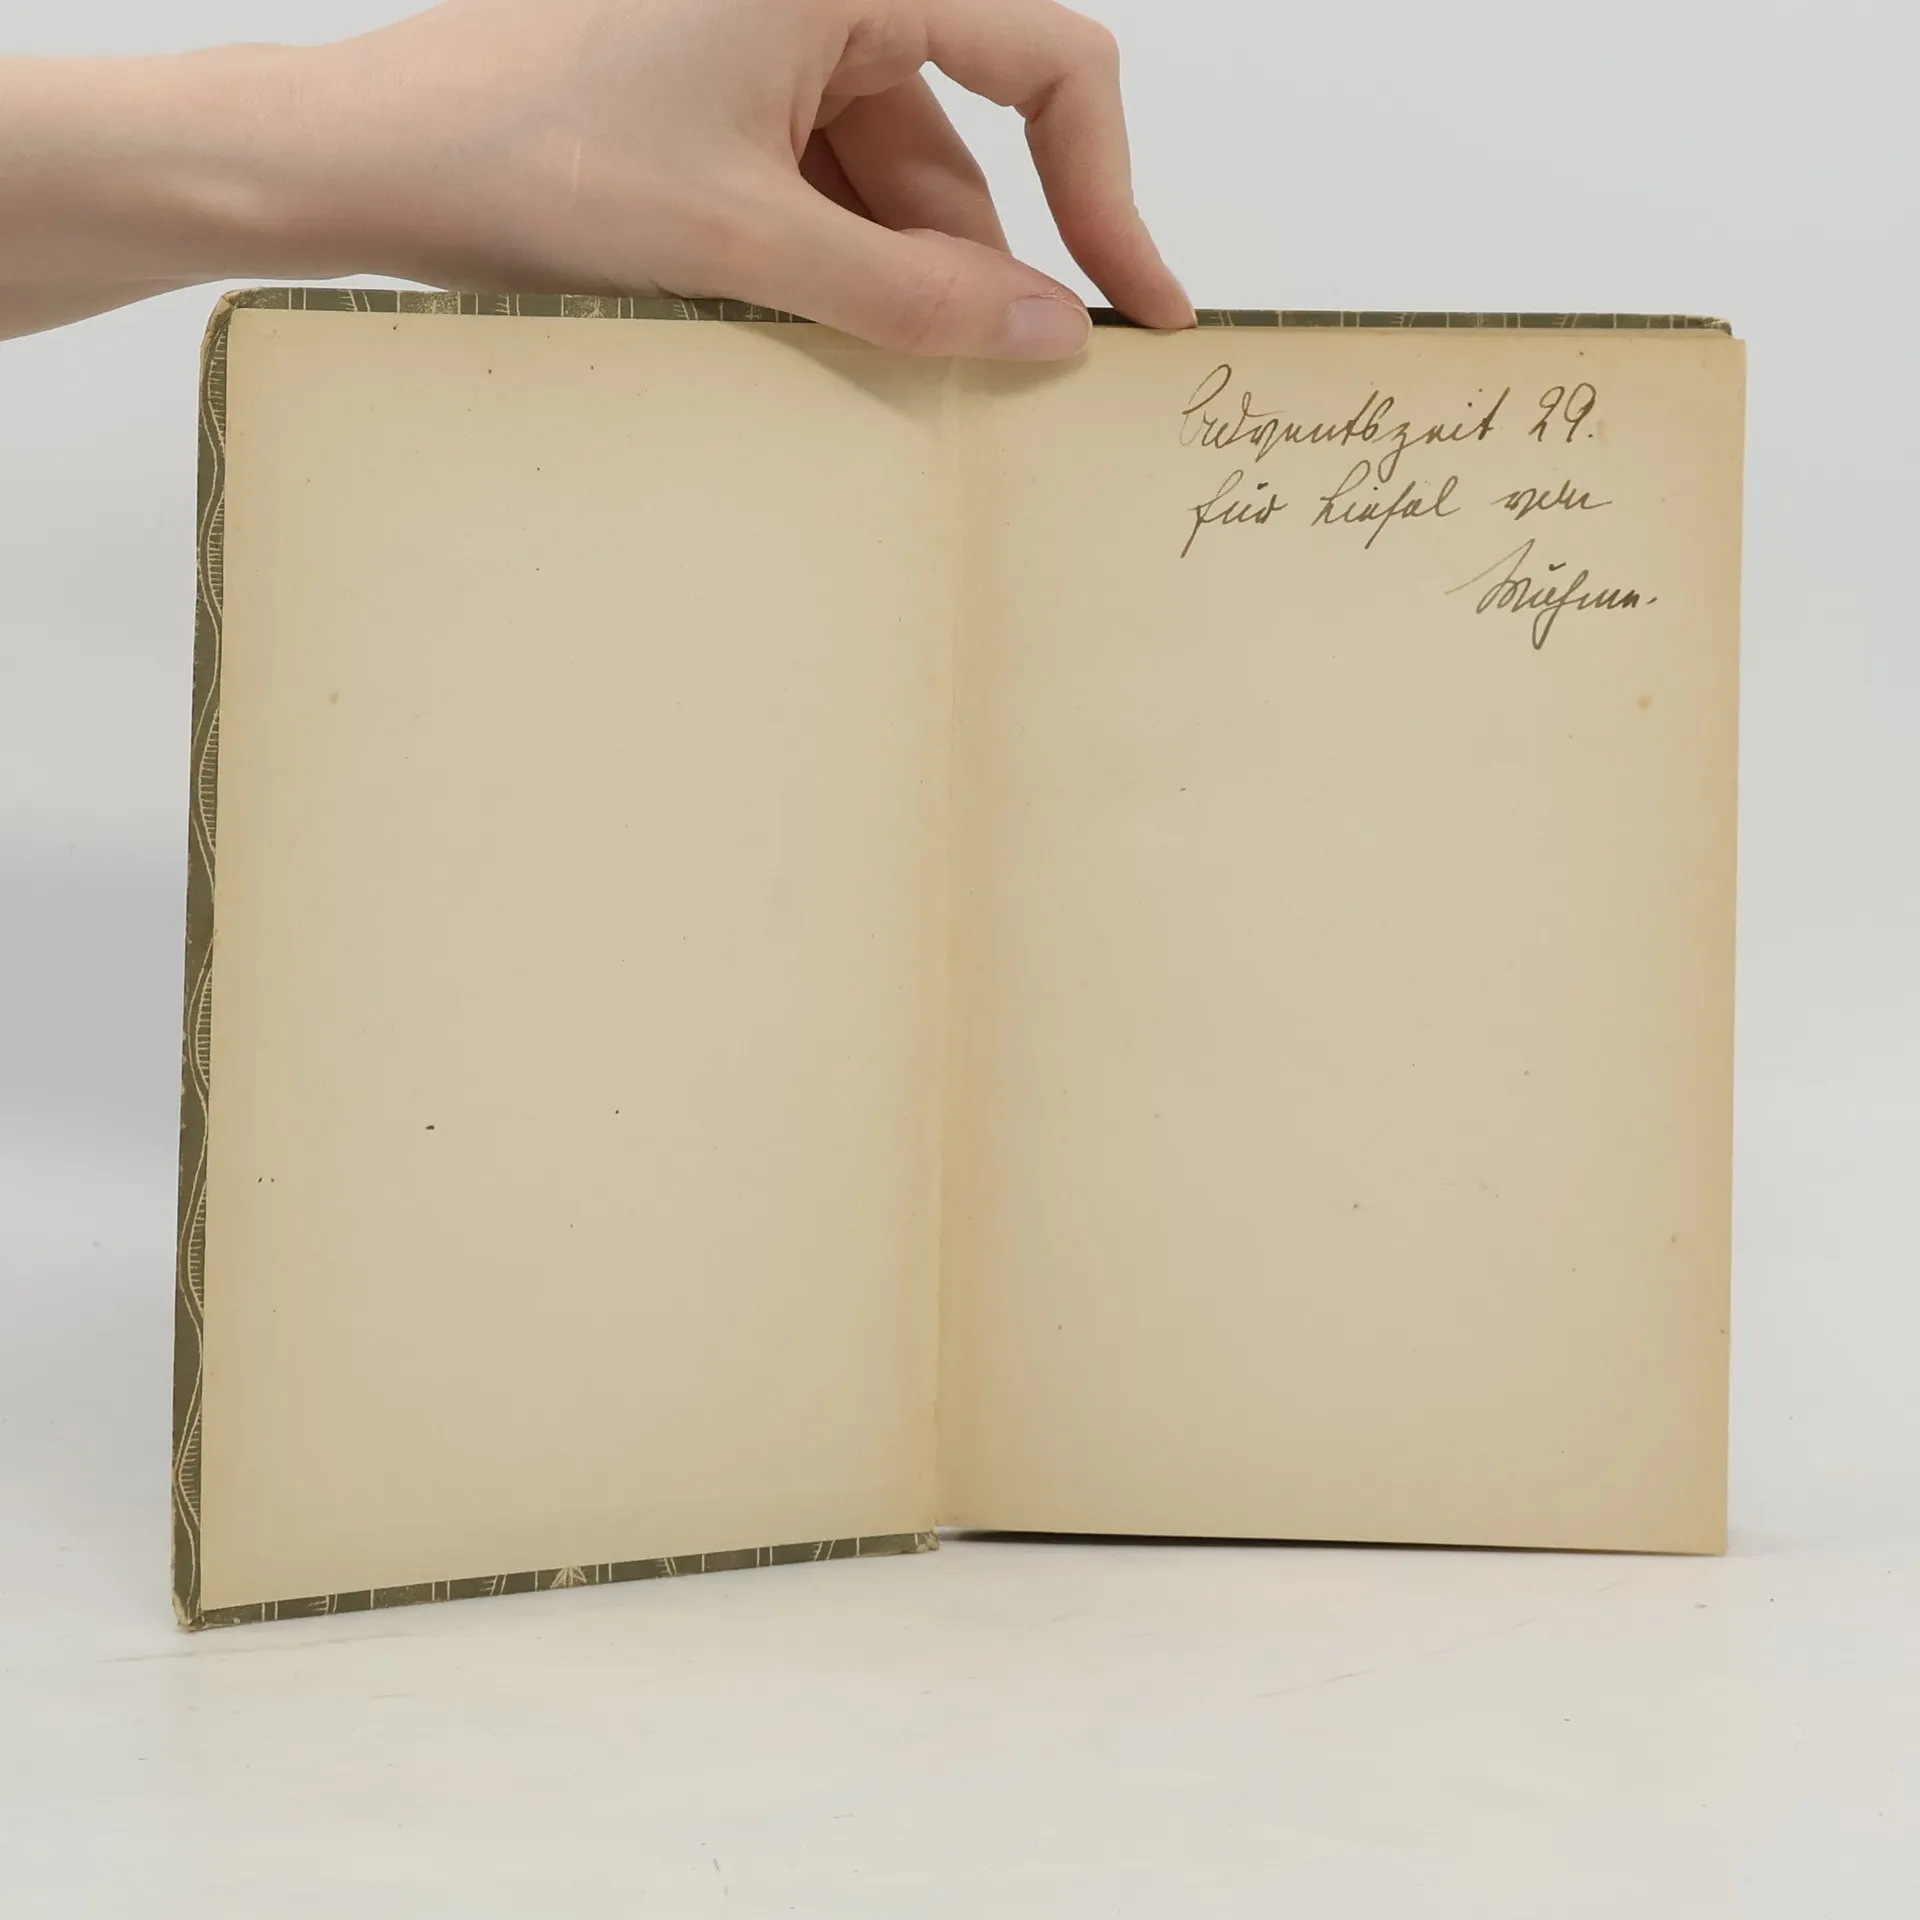 Adventszeit 29.
für Liesel von
Muhme.